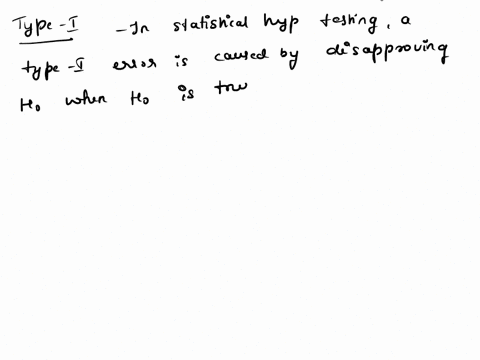 Type-I - In statistical hyp testing, a
type-I error is caused by disapproving
H0 when H0 is true